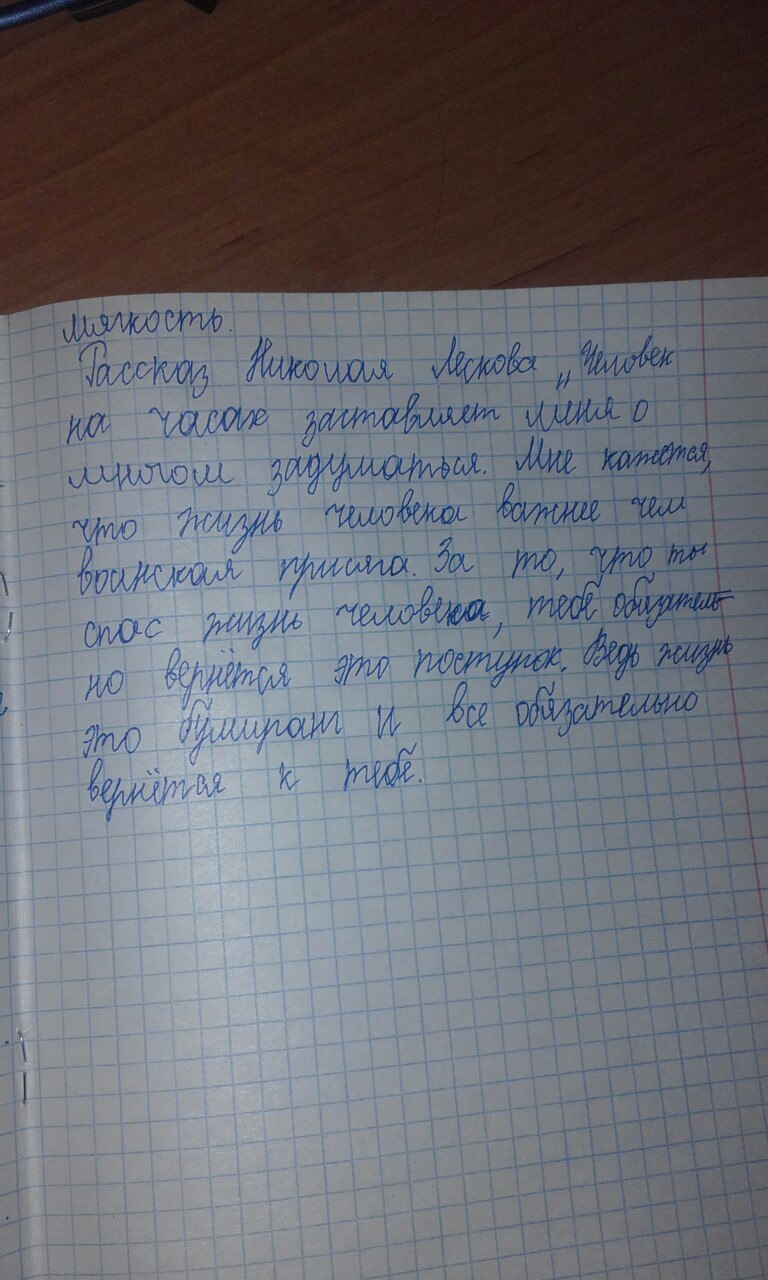 мягкость.
Рассказ Николая Лескова „Человек
на часах заставляет меня о
многом задуматься. Мне кажется,
что жизнь человека важнее чем
воинская присяга. За то, что ты
спас жизнь человека, тебе обязатель-
но вернётся это поступок. Ведь жизнь
это бумиранг и все обязательно
вернётся к тебе.